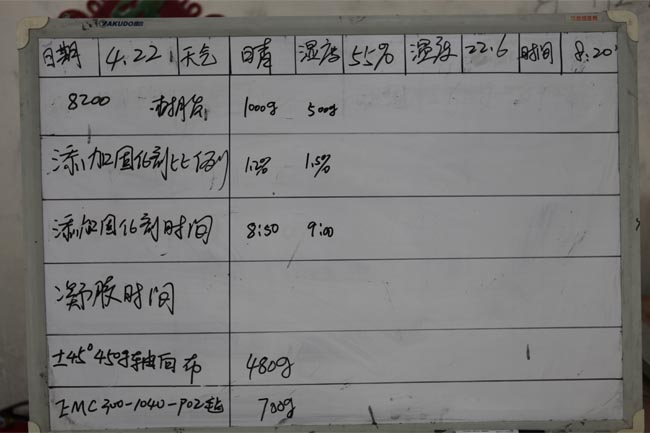 YAKUDO
日期 4.22 天气 日青 湿度 55% 温度 22.6 时间 8:20
8200 树脂 1000g 500g
添加固化剂比例 1.2% 1.5%
添加固化剂时间 8:50 9:00
凝胶时间
±45° 轴向布 480g
EMC300-1040-P02毡 700g